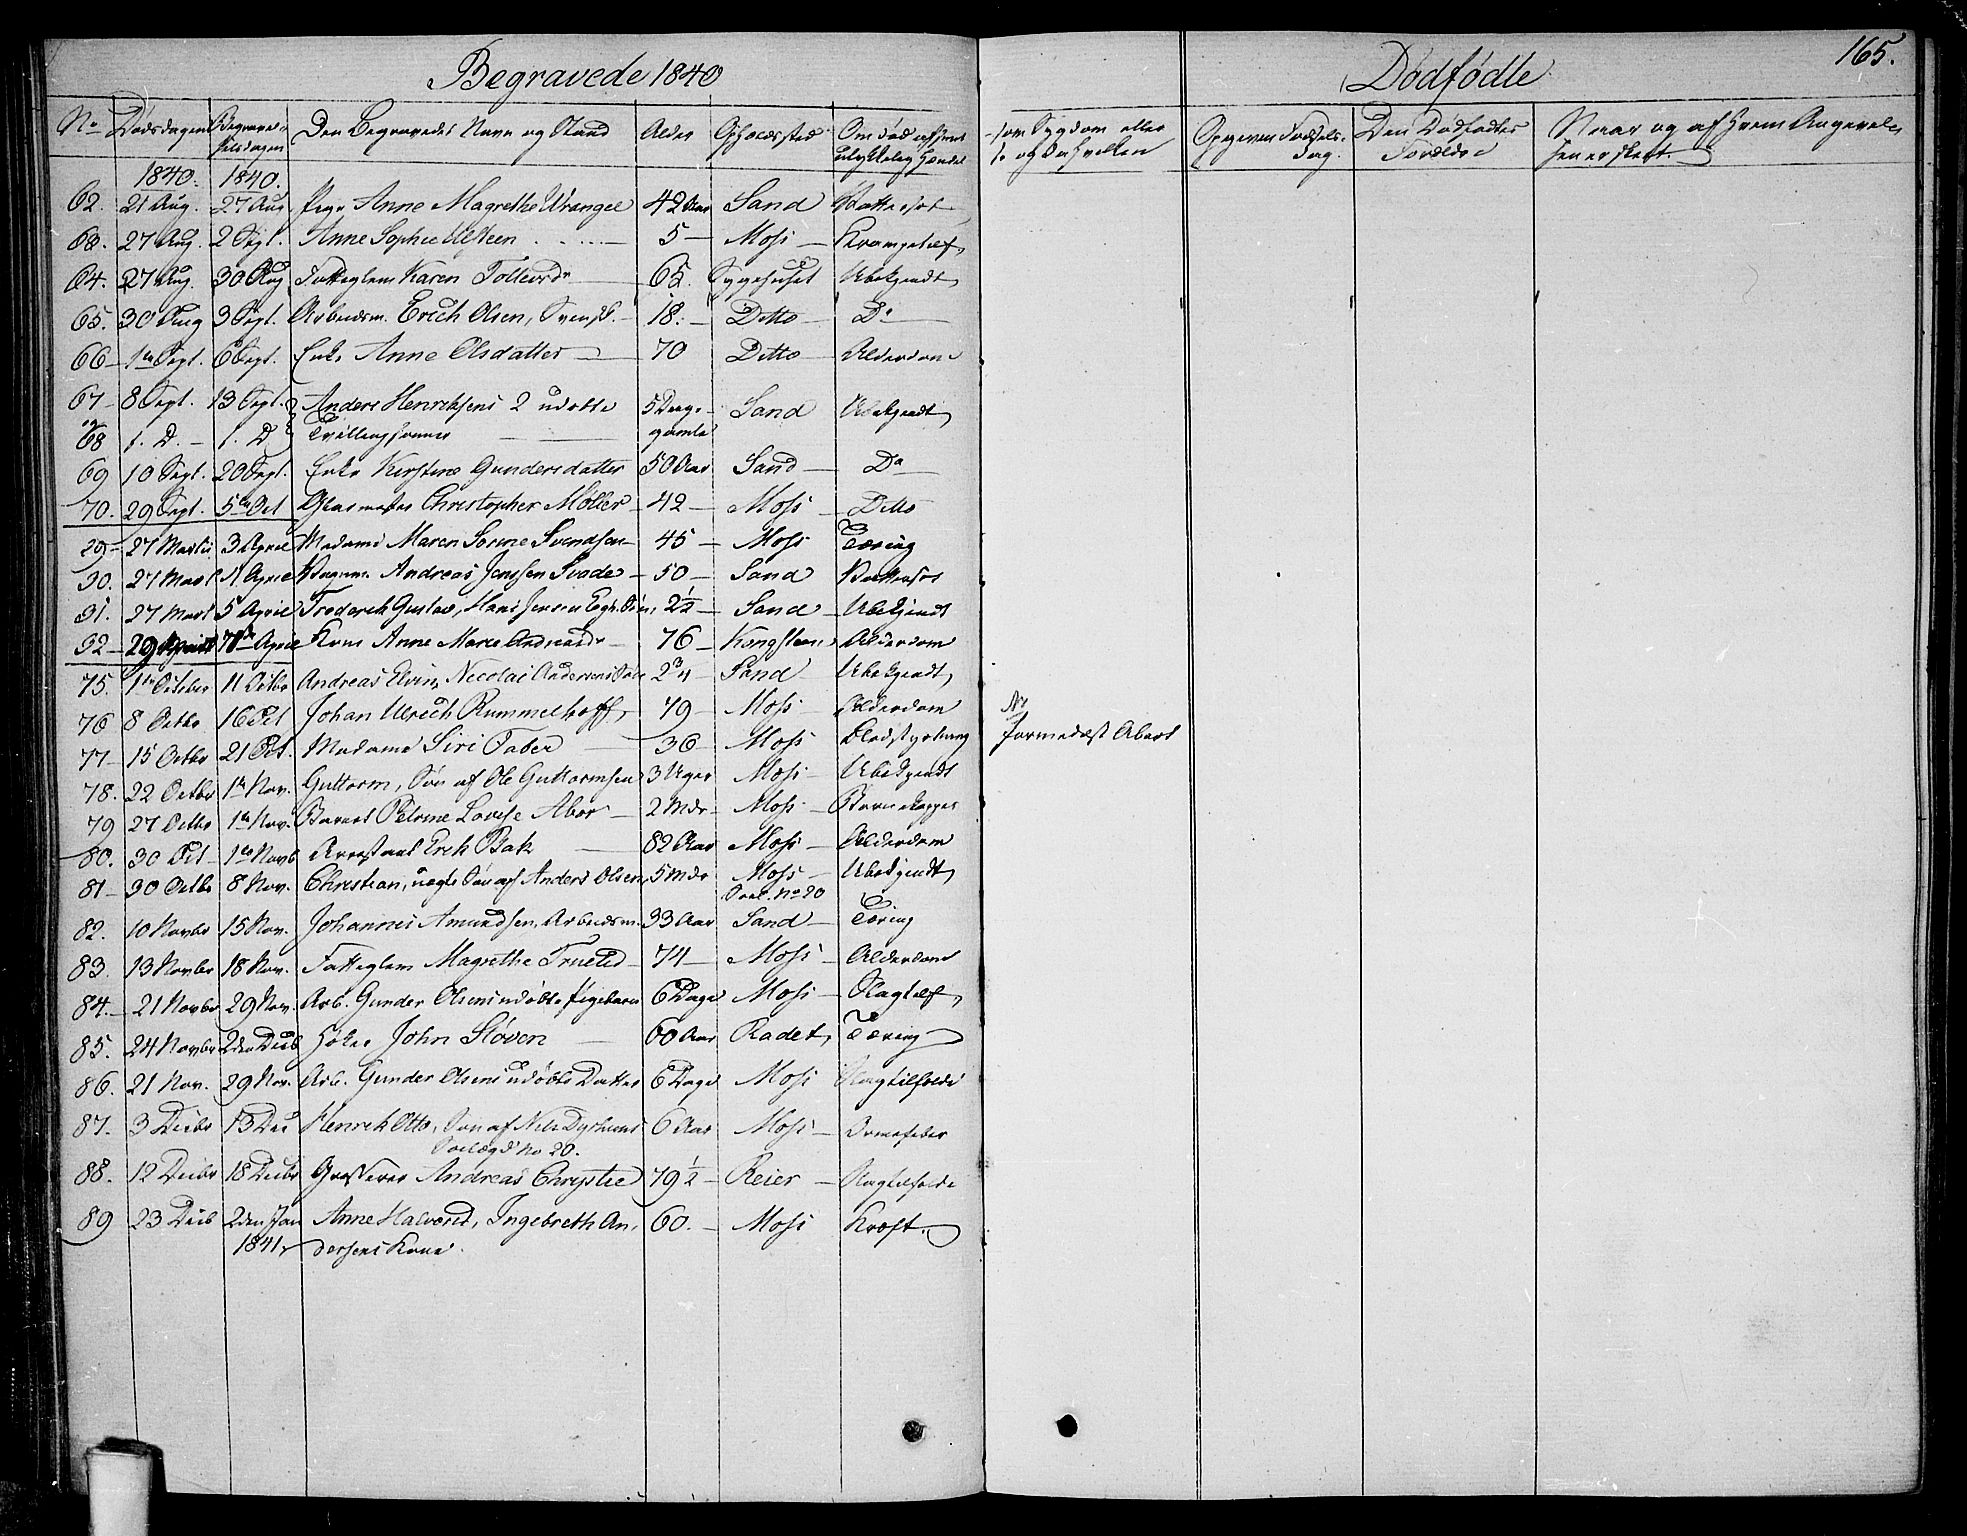 Begravede 1840
Dødfødte
165.
No Dødsdagen Begravelsesdagen Den Begravedes Navn og Stand Alder Opholdssted Om død af
som Sygdom eller Opgiven Fødselsdag. Den Dødfødtes Forældre Naar og af hvem Angivelsen er skeet.
1840. 1840.
62. 21 Aug. 27 Aug. Pige Anne Magrethe Wrangel 42 Aar Sand Vattersot
63. 27 Aug. 2 Sept. Anne Sophie Ulsteen 5 — Moss — Krampetilf.
64. 27 Aug. 30 Aug Fatteglem Karen Tollevsdr 65. Sygehuset Ubekjendt
65. 30 Aug 3 Sept. Arbeidsm. Erich Olsen, Svensk. — 18. — Ditto — Do
66 — 1te Sept. 6 Sept. Enke Anne Olsdatter — 70 Ditto — Alderdom
67 — 8 Sept. 13 Sept. Anders Henriksens 2 udøbte 5 Dage Sand Ubekjendt
og
68 f. D. — f. D. Tvillingsønner gamle
69 10 Sept. 20 Sept. Enke Kirstine Gundersdatter 50 Aar Sand — Do
70. 29 Sept. 5te Oct Glasmester Christopher Møller — 42 — Moss — Ditto
29 — 27 Martii 3 April Madame Maren Sorine Svendsen — 45 — Moss Tæring
30. 27 Mart 1 April Andreas Jenssen Svade — 50 — Sand Vattersot
31. 27 Mart 5 April Frederik Gustav, Hans Jensen Søn, 2½ — Sand — Ubekjendt
32 — 29 7de April Kone Anne Marie Andreasdr — 76 — Kongsteen Alderdom
75. 1te October 11 Octbr Andreas Elvin, Nicolai Andersens Søn 2¾ — Sand Ubekjendt
76 8 Octbr 16 Oct Johan Ulrich Rummelhoff, 49 — Moss — Alderdom
77 — 15 Octbr 21 Oct. Madame Siri Faber — 36 — Moss Blodstyrtning formedelst Abort
78. 22 Octbr 1te Nov. Guttorm, Søn af Ole Guttormsen 3 Uger Moss — Ubekjendt
79 27 Octbr 1te Nov. Barnet Petrine Lovise Abor — 2 Mdr Moss — Børnekopper
80. 30 Oct — 1te Novb Arrestant Erik Bak — 82 Aar Moss — Alderdom
81 — 30 Octbr 8 Nov. Christian, uægte Søn af Anders Olsen, 5 Mdr Moss — Ubekjendt
No 20
82. 10 Novbr 15 Nov. Johannes Amundsen, Arbeidsm. 33 Aar Sand — Tæring
83. 13 Novbr 18 Nov. Fatteglem Magrethe Truelsd — 74 — Moss — Alderdom
84. — 21 Novbr 29 Nov. Arb. Gunder Olsens udøbte Pigebarn 6 Dage Moss — Slagtilf.
85. 24 Novbr 2den Decb Høker John Sløven — 60 Aar Radet, Tæring
86. 21 Nov. 29 Nov. Arb. Gunder Olsens udøbte Datter 6 Dage Moss Slagtilfælde
87. 3 Decbr 13 Dec Henrik Otto, Søn af Nils 6 Aar Moss — Ormefeber
No 20.
88. 12 Decbr 18 Decbr Grosserer Andreas Chrystie 79½ — Reier — Slagtilfælde
89 23 Decb 2den Jan Anne Halvorsd, Ingebreth An- 60. — Moss Kræft.
1841 dersens Kone.